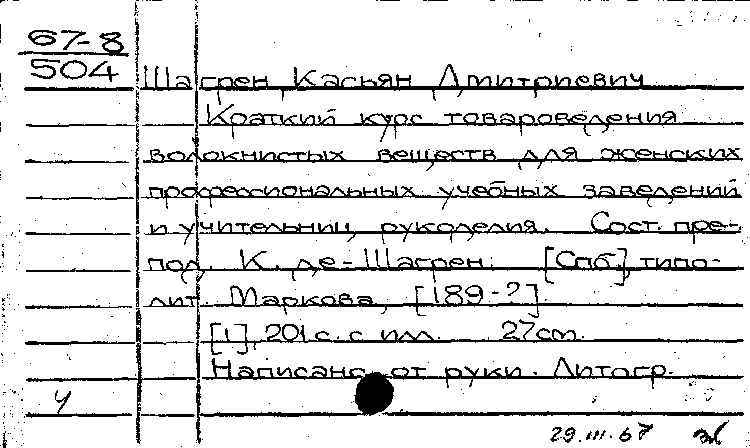 67-8
504
Шагрен, Касьян Дмитриевич
Краткий курс товароведения
волокнистых веществ для женских
профессиональных учебных заведений
и учительниц рукоделия. Сост. пре-
под. К. де-Шагрен. [Спб.], типо-
лит. Маркова, [189-?].
[1], 201 с. с илл. 27 см.
Написано от руки. Литогр.
29.III.67